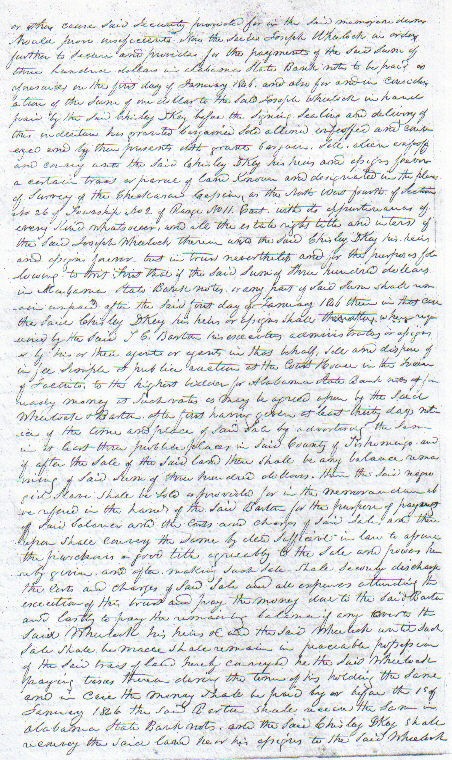 or other cause Said Security provided for in the Said memorandum
Should prove insufficient. Now the Said Joseph Wheelock in order
further to Secure and provide for the payment of the Said Sum of
three hundred dollars in Alabama State Bank notes to be paid as
aforesaid on the first day of January 1846. and also for and in consider
ation of the Sum of one dollar to the Said Joseph Wheelock in hand
paid by the Said Chisley D Key before the Signing Sealing and delivery of
this indenture has granted bargained Sold aliened enfeoffed and conv
eyed and by these presents doth grant bargain, Sell, alien enfeoff
and convey unto the Said Chisley D Key his heirs and assigns forever
a certain tract or parcel of land Known and designated in the plan
of Survey of the Chickasaw Cession, as the North West fourth of Section
No 26 of Township No 2 of Range No 11. East. with its appurtenances of
every Kind whatsoever, and all the estate right title and interest of
the Said Joseph Wheelock therein unto the Said Chisley D Key his heirs
and assigns forever but in trust nevertheless and for the purposes fol
lowing to Wit: First that if the Said Sum of three hundred dollars
in Alabama State Bank notes, or any part of Said Sum Shall rem
ain unpaid after the Said first day of January 1846 then in that case
the Said Chisley D Key his heirs or assigns Shall thereafter, when req
uired by the Said Barton his executors administrators or assigns
or by his or their agent or agents in that behalf, Sell and dispose of
in fee Simple at public auction at the Court House in the town
of Jacinto to the highest bidder for Alabama State Bank notes
money at Such rates as may be agreed upon by the Said
Wheelock & Barton, after first having given at least thirty days not
ice of the time and place of Said Sale by advertising the Same
in at least three public places in Said County of Tishomingo and
if after the Sale of the Said land there Shall be any balance rema
ining of Said Sum of three hundred dollars, then the Said negro
girl Slave Shall be Sold as provided for in the memorandum ab
ove refered in the hands of the Said Barton for the purpose of payment
of Said balance and the Costs and charges of Said Sale, and there
upon Shall convey the Same by deed Sufficient in law to assure
the purchaser a good title agreeably to the Sale and powers he
reby given. and after making Such Sale Shall Secondly discharge
the Costs and charges of Said Sale and all expenses attending the
execution of this trust and pay the money due to the Said Barton
and Lastly to pay the remaining balance if any over to the
Said Wheelock his heirs & and the Said Wheelock until Such
Sale Shall be made Shall remain in peaceable possession
of the Said tract of land hereby conveyed he the Said Wheelock
paying taxes thereon during the time of his holding the Same
and in case the money Shall be paid by or before the 1st of
January 1846 the Said Barton Shall receive the Same in
Alabama State Bank notes. and the Said Chisley D Key Shall
reconvey the Said land he or his assigns to the Said Wheelock